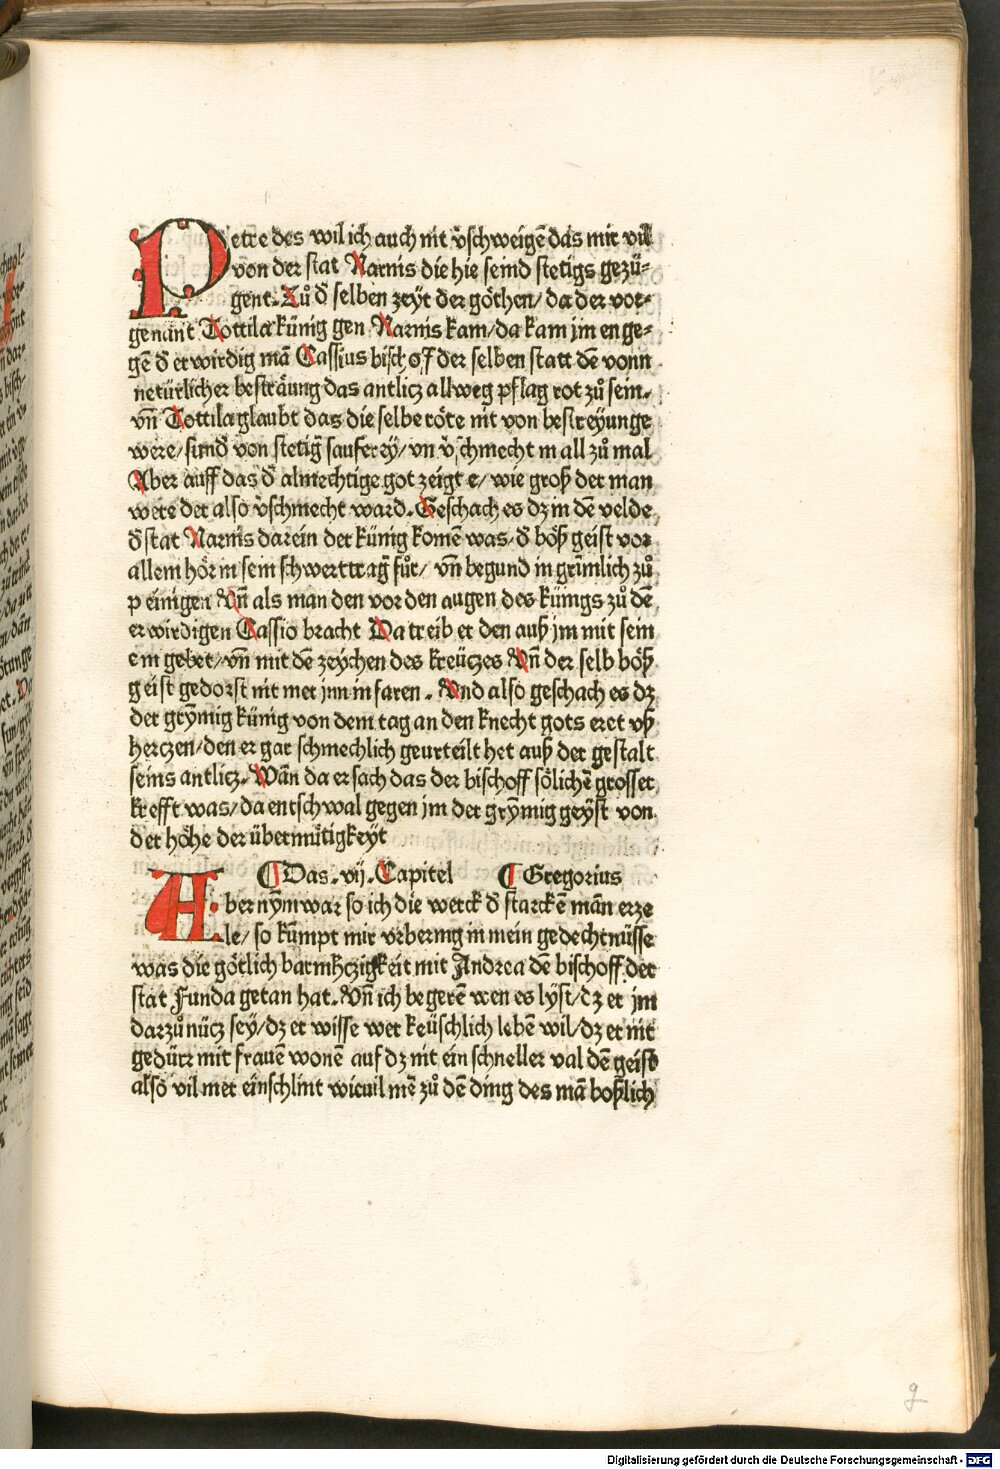 Petre des wil ich auch nit v̾schweigē das mir vil
von der stat Narnis die hie seind stetigs gezü⸗
gent. Zů d̾ selben zeyt der göthen/ da der vor⸗
genant Tottila künig gen Narnis kam/da kam jm en ge⸗
gē d̾ erwirdig mā Cassius bisch off der selben statt dē vonn
netürlicher besträung das antlicz allweg pflag rot zů sein.
vn̄ Tottila glaubt das die selbe röte nit von bestreyunge
were/ sund̾ von stetig̾ sauferey/ vn v̾schmecht in all zů mal
Aber auff das d̾ almechtige got zeigt e/ wie groß der man
were der also v̾schmecht ward. Geschach es dz in dē velde
d̾ stat Narnis darein der künig komē was/ d̾ böß geist vor
allem hör in sein schwerttrag̾ fůr/ vn̄ begund in grimlich zů
p einigen Vn̄ als man den vor den augen des künigs zů dē
erwirdigen Cassio bracht Da treib er den auß jm mit sein
em gebet/ vn̄ mit dē zeychen des kreüczes Vn̄ der selb böß
geist gedorst nit mer jnn in faren. Vnd also geschach es dz
der grymig künig von dem tag an den knecht gots eret vß
herczen/den er gar schmechlich geurteilt het auß der gestalt
seins antlicz. Wān da er sach das der bischoff sölichē grosser
krefft was/ da entschwal gegen jm der grymig geyst von
der höhe der übermütigkeyt
¶ Das. vij. Capitel ¶ Gregorius
Aber nym war so ich die werck d̾ starckē mān erze
le/ so kumpt mir vrbering in mein gedechtnüsse
was die götlich barmhczigkeit mit Andrea dē bischoff der
stat Funda getan hat. Vn̄ ich begerē wen es lyst/ dz er jm
darzů nücz sey/ dz er wisse wer keüschlich lebē wil/ dz er nit
gedürr mit frauē wonē auf dz nit ein schneller val dē geist
also vil mer einschlint wieuil mē zů dē ding des mā boßlich
g
Digitalisierung gefördert durch die Deutsche Forschungsgemeinschaft - DFG